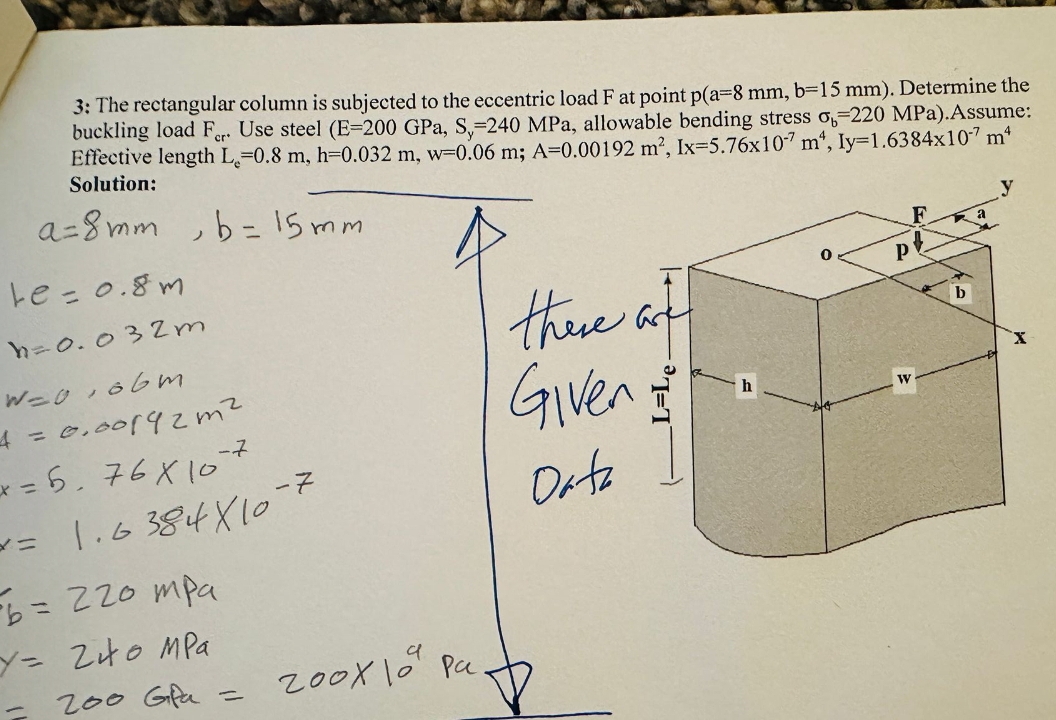 3: The rectangular column is subjected to the eccentric load F at point p(a=8 mm, b=15 mm). Determine the
buckling load Fcr. Use steel (E=200 GPa, Sy=240 MPa, allowable bending stress σb=220 MPa).Assume:
Effective length Le=0.8 m, h=0.032 m, w=0.06 m; A=0.00192 m², Ix=5.76x10⁻⁷ m⁴, Iy=1.6384x10⁻⁷ m⁴
Solution:
a=8mm , b = 15mm
Le = 0.8m
h=0.032m
w=0.06m
A = 0.00192m²
x = 5.76X10⁻⁷
= 1.6384X10⁻⁷
b = 220 mPa
y = 240 MPa
= 200 GPa = 200X10⁹ Pa
these are
Given
Data
y
F
a
o
P
b
x
L=Le
h
w